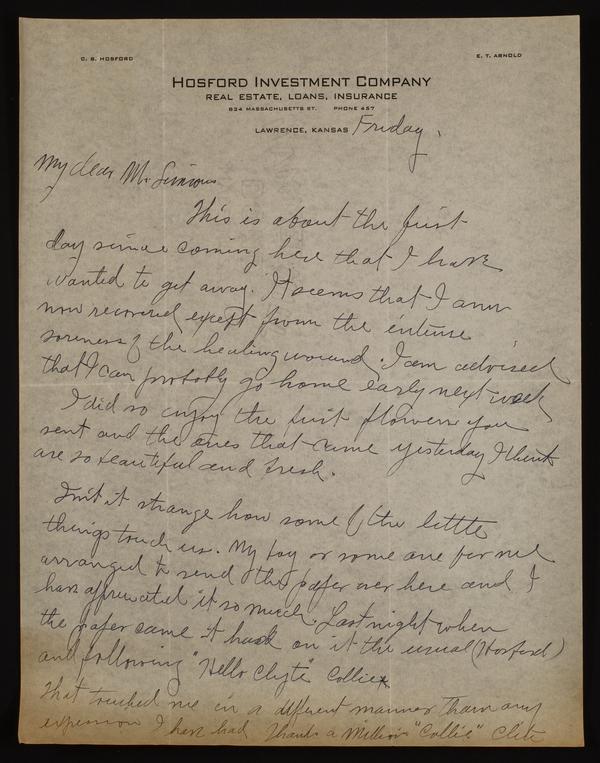 C. B. HOSFORD
E. T. ARNOLD
HOSFORD INVESTMENT COMPANY
REAL ESTATE, LOANS, INSURANCE
824 MASSACHUSETTS ST. PHONE 457
LAWRENCE, KANSAS Friday.
My dear Mr. Simmons
This is about the first
day since coming here that I have
wanted to get away. It seems that I am
now recovered except from the intense
soreness of the healing wound. I am advised
that I can probably go home early next week
I did so enjoy the first flowers you
sent and the ones that came yesterday I think
are so beautiful and fresh.
Isn't it strange how some of the little
things touch us. My boy or some one for me
arranged to send the paper over here and I
have appreciated it so much. Last night when
the paper came it had on it the usual (Hosford)
and following "Hello Clyte" Collie
That touched me in a different manner than any
expression I have had Thanks a Million "Collie" Clite